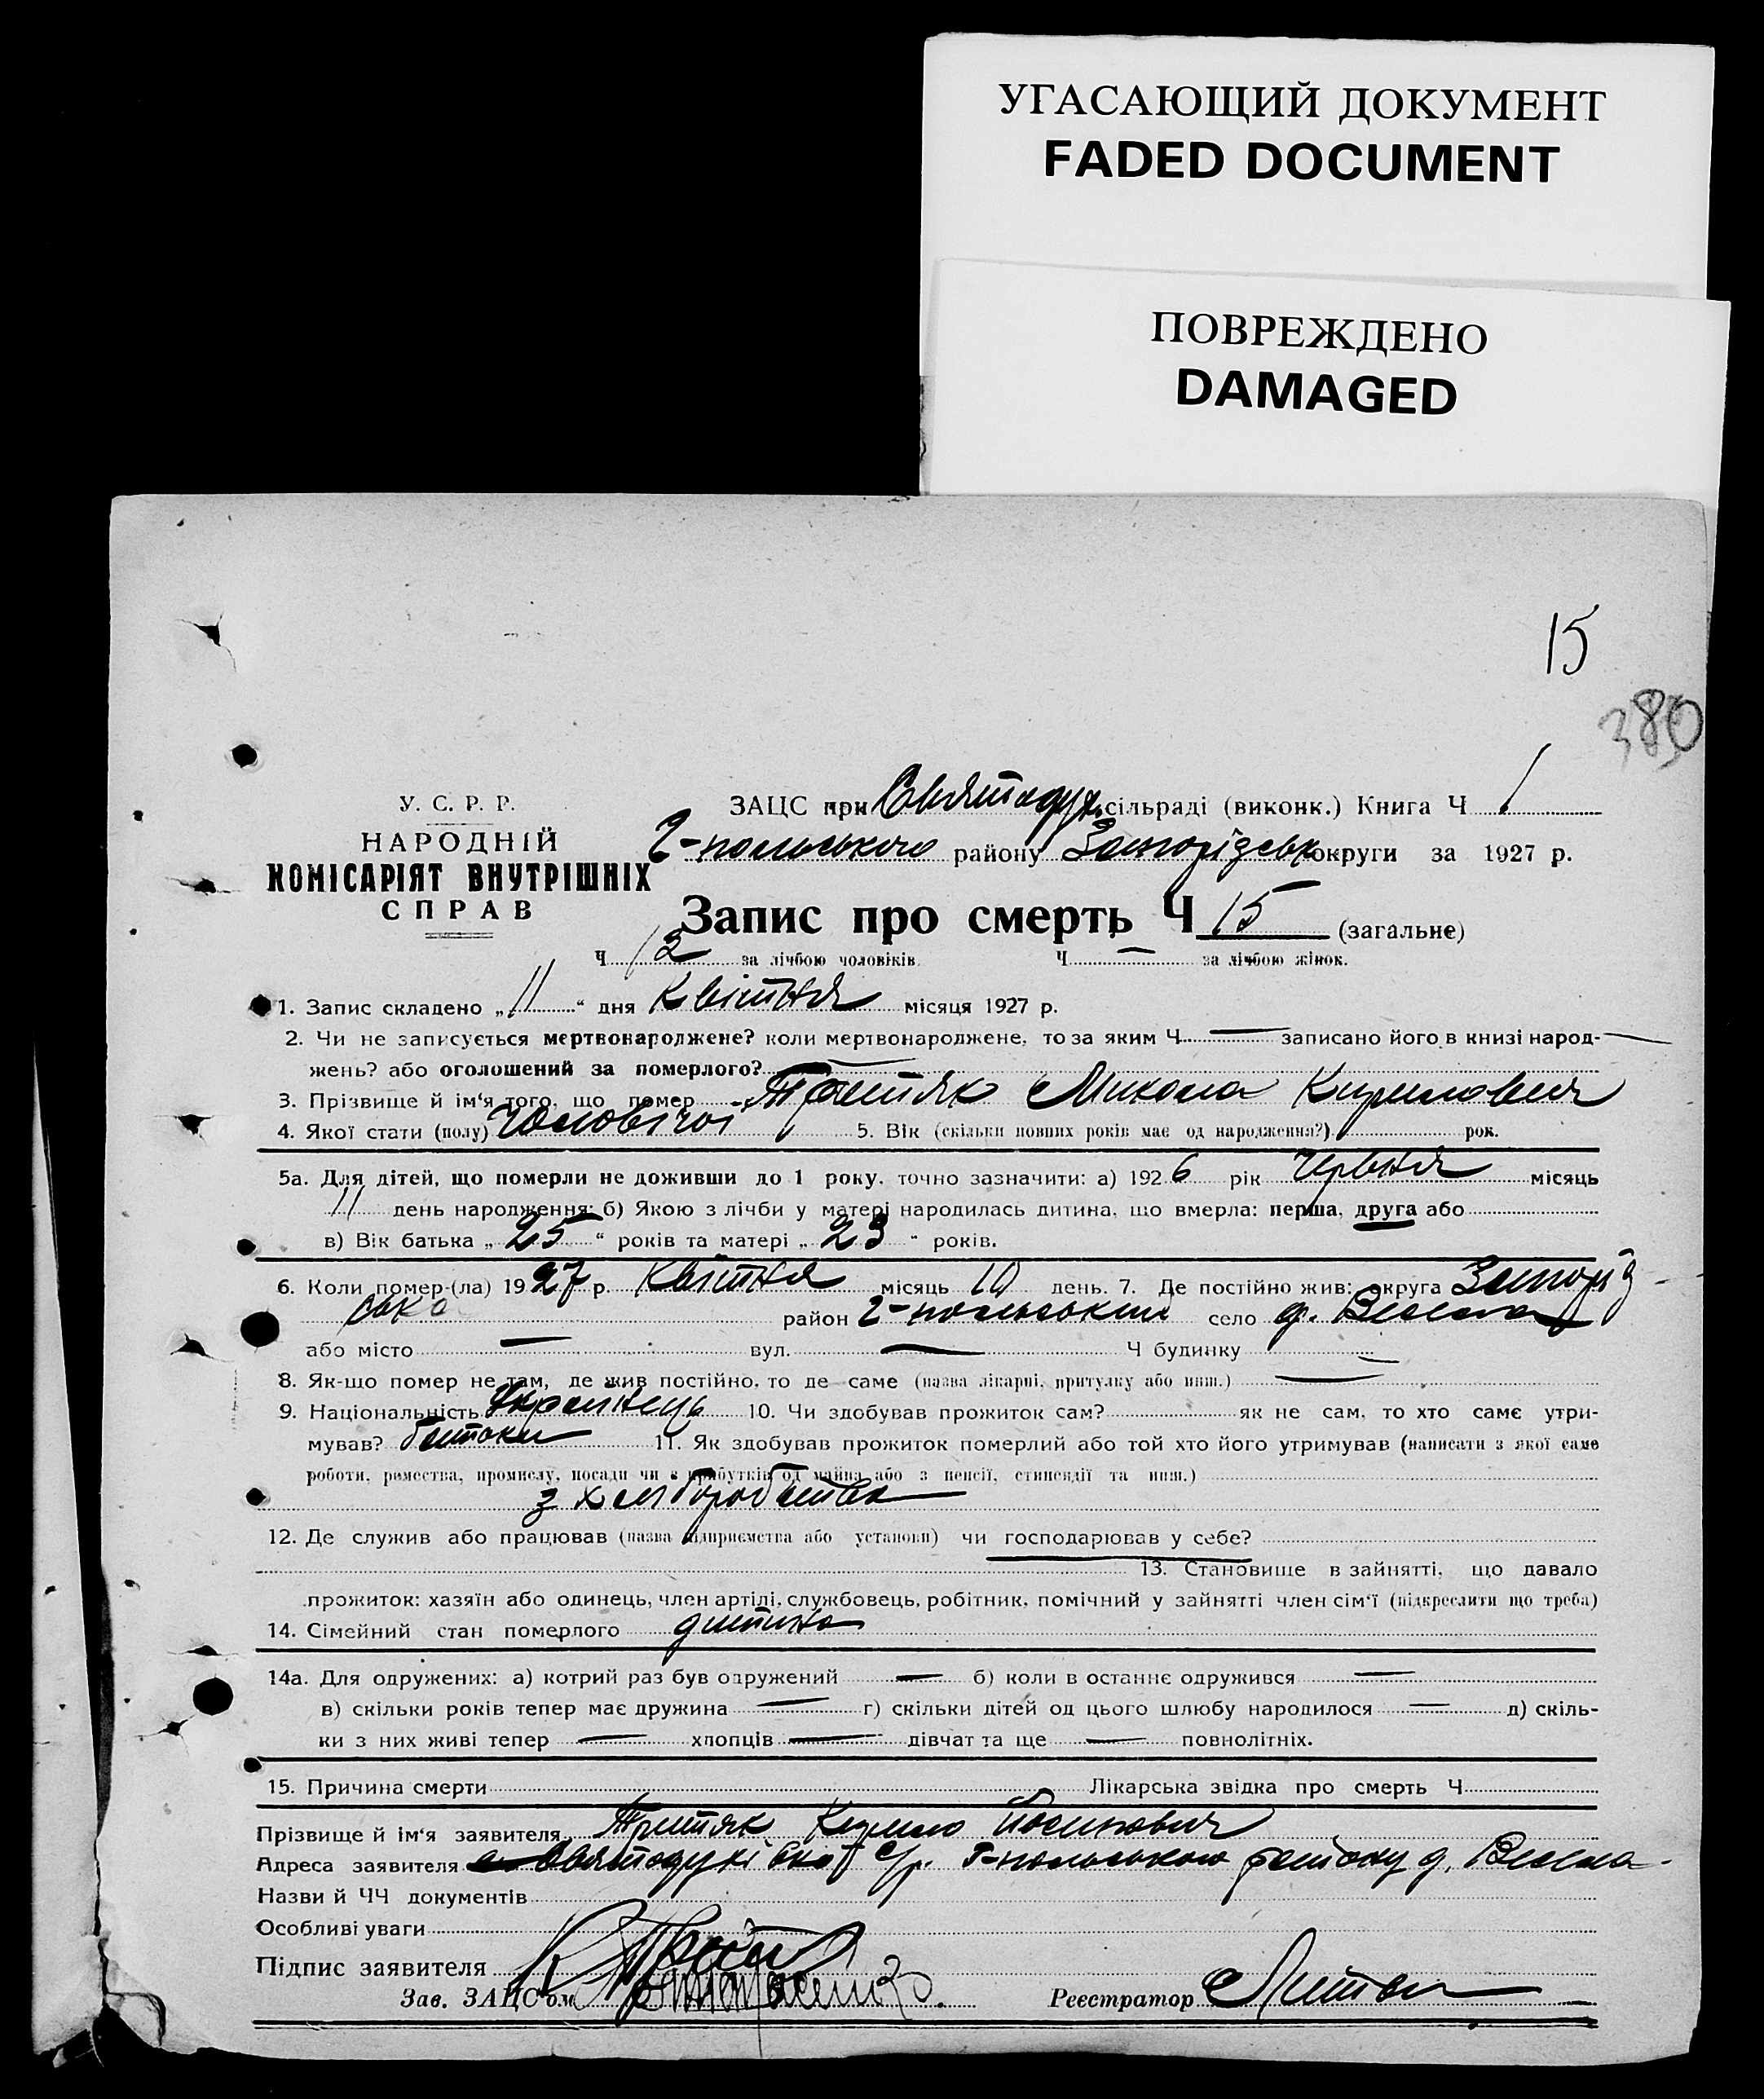 УГАСАЮЩИЙ ДОКУМЕНТ
FADED DOCUMENT
ПОВРЕЖДЕНО
DAMAGED
15
380
У. С. Р. Р.
НАРОДНІЙ
КОМІСАРІЯТ ВНУТРІШНІХ
СПРАВ
ЗАЦС при Святодух. сільраді (виконк.) Книга Ч 1
г-польського району Запорізьк округи за 1927 р.
Запис про смерть Ч 15 (загальне)
Ч 12 за лічбою чоловіків. Ч — за лічбою жінок.
1. Запис складено „11“ дня Квітня місяця 1927 р.
2. Чи не записується мертвонароджене? коли мертвонароджене, то за яким Ч — записано його в книзі народ-
жень? або оголошений за померлого?
3. Прізвище й ім‘я того, що помер Третяк Микола Кирилович
4. Якої стати (полу) Чоловічої 5. Вік (скільки повних років має од народження?) рок.
5а. Для дітей, що померли не доживши до 1 року, точно зазначити: а) 1926 рік Червня місяць
11 день народження; б) Якою з лічби у матері народилась дитина, що вмерла: перша, друга або
в) Вік батька „25“ років та матері „23“ років.
6. Коли помер-(ла) 1927 р. Квітня місяць 10 день. 7. Де постійно жив: округа Запоріз-
ька район г-польський село
або місто — вул. — Ч будинку —
8. Як-що помер не там, де жив постійно, то де саме (назва лікарні, притулку або инш.) —
9. Національність Українець 10. Чи здобував прожиток сам? як не сам, то хто саме утри-
мував? батьки 11. Як здобував прожиток померлий або той хто його утримував (написати з якої саме
роботи, ремества, промислу, посади чи з прибутків од майна або з пенсії, стипендії та инш.)
з хліборобства
12. Де служив або працював (назва підприємства або установи) чи господарював у себе?
13. Становище в зайнятті, що давало
прожиток: хазяїн або одинець, член артілі, службовець, робітник, помічний у зайнятті член сім‘ї (підкреслити що треба)
14. Сімейний стан померлого дитина
14а. Для одружених: а) котрий раз був одружений — б) коли в останнє одружився —
в) скільки років тепер має дружина — г) скільки дітей од цього шлюбу народилося — д) скіль-
ки з них живі тепер — хлопців — дівчат та ще — повнолітніх.
15. Причина смерти Лікарська звідка про смерть Ч
Прізвище й ім‘я заявителя Третяк Кирило Йосипович
Адреса заявителя Святодухівка с/р. г-польського району
Назви й ЧЧ документів
Особливі уваги
Підпис заявителя
Зав. ЗАЦС‘ом Реєстратор